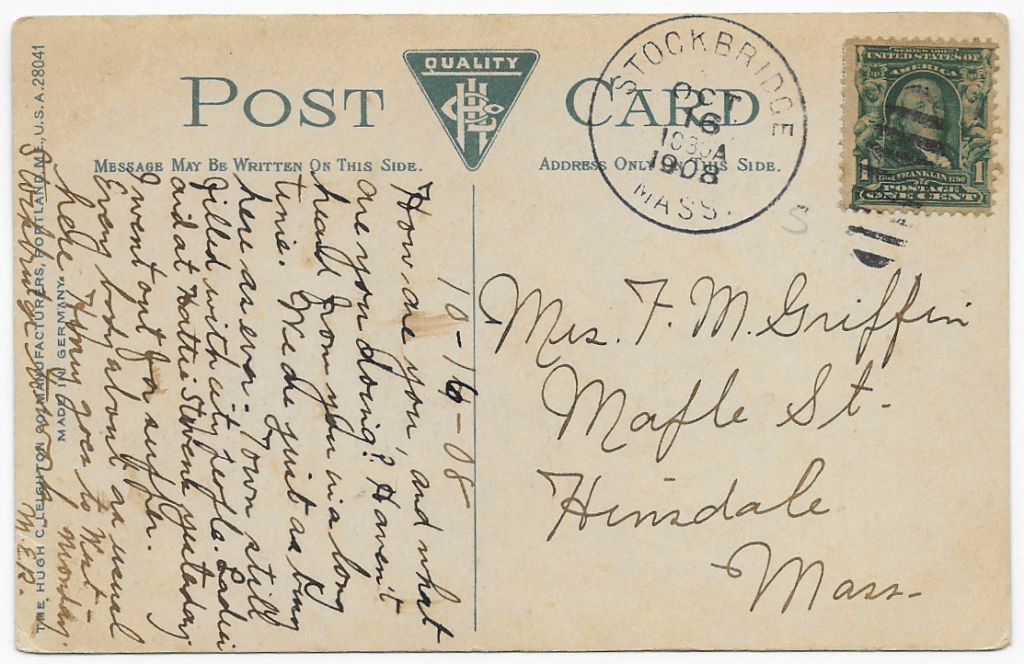 POST CARD
QUALITY
MESSAGE MAY BE WRITTEN ON THIS SIDE.
ADDRESS ONLY ON THIS SIDE.
STOCKBRIDGE
OCT
16
1030A
1908
MASS.
SERIES 1902
UNITED STATES OF
AMERICA
1 FRANKLIN 1790 1
POSTAGE
ONE CENT
S
10-16-08
How are you, and what
are you doing? Haven't
heard from you in a long
time. just as busy
here as ever. Town still
filled with city people. Ladies
aid at Hattie Stevens yesterday
I went out for supper.
Every body about as usual
here. goes to West-
Stockbridge Monday.
M.E.R.
Mrs. F. M. Griffin
Maple St.
Hinsdale
Mass.
THE HUGH C. LEIGHTON CO., MANUFACTURERS, PORTLAND, ME., U.S.A. 28041
MADE IN GERMANY.